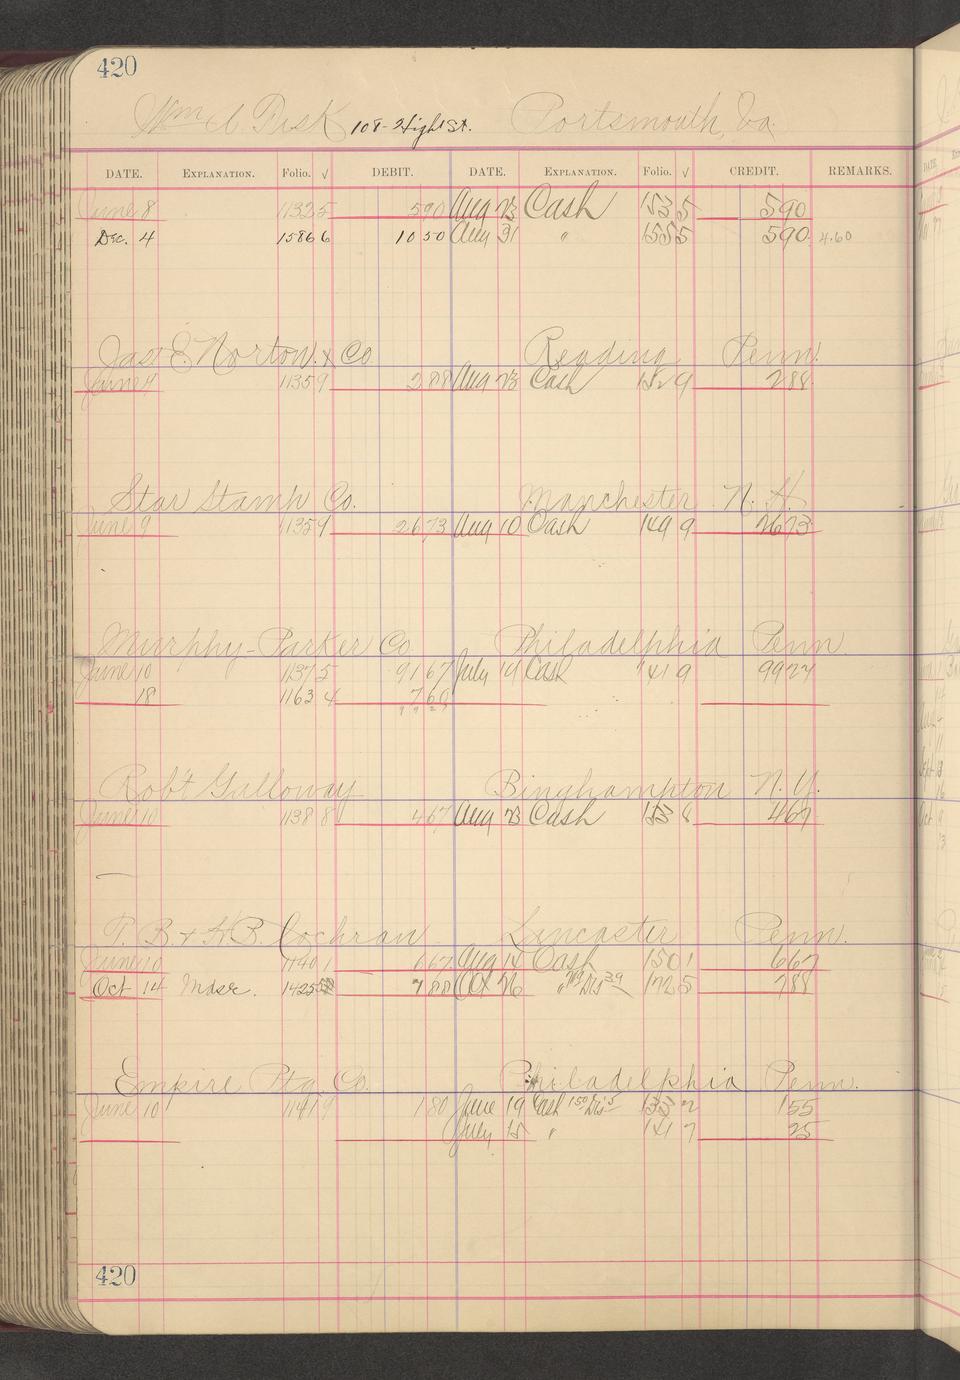 420
Wm A. Fisk 108 - High St. Portsmouth, Va.
DATE. EXPLANATION. Folio. √ DEBIT. DATE. EXPLANATION. Folio. √ CREDIT. REMARKS.
June 8 1132 5 590 Aug 23 Cash 153 5 590
Dec. 4 1586 6 1050 Aug 31 " 155 5 590 4.60
Jas E. Norton & Co Reading Penn.
June 9 1135 9 288 Aug 23 Cash 152 9 288
Star Stamp Co. Manchester N. H.
June 9 1135 9 2673 Aug 10 Cash 149 9 2673
Murphy-Parker Co Philadelphia Penn
June 10 1137 5 9167 July 14 Cash 141 9 9927
18 1163 4 760
9927
Rob't Galloway Binghampton N. Y.
June 10 1138 8 467 Aug 23 Cash 153 8 467
T. B. & H. B. Cochran Lancaster Penn.
June 10 1140 1 667 Aug 14 Cash 150 1 667
Oct 14 Mdse. 1425 788 Oct 26 " Dis 39 172 5 788
Empire Ptg Co. Philadelphia Penn.
June 10 1141 9 180 June 19 Cash 150 Dis 5 2 155
July 15 " 141 7 25
420